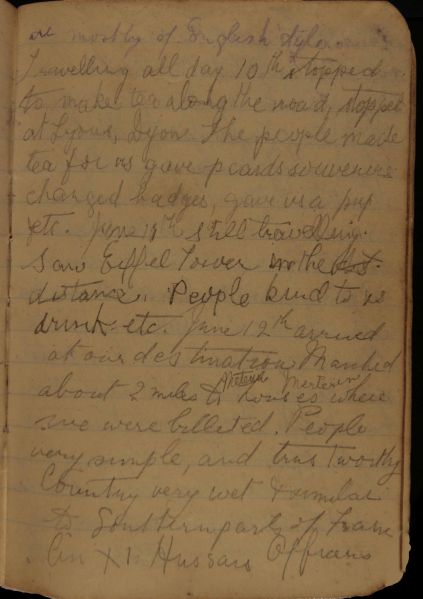 are mostly of English style
Travelling all day 10th stopped
to make tea along the road, stopped
at Lyons, Dyone. The people made
tea for us gave p cards souvenirs
charged badges, gave us a pup
etc. June 11th still travelling.
Saw Eiffel Tower in the
distance. People kind to us
drink etc. June 12th arrived
at our destination Marched
about 2 miles to houses where
Meteren Merteren
we were billeted. People
very simple, and trustworthy
Country very wet & similar
to Southern parts of France
An XI Hussars